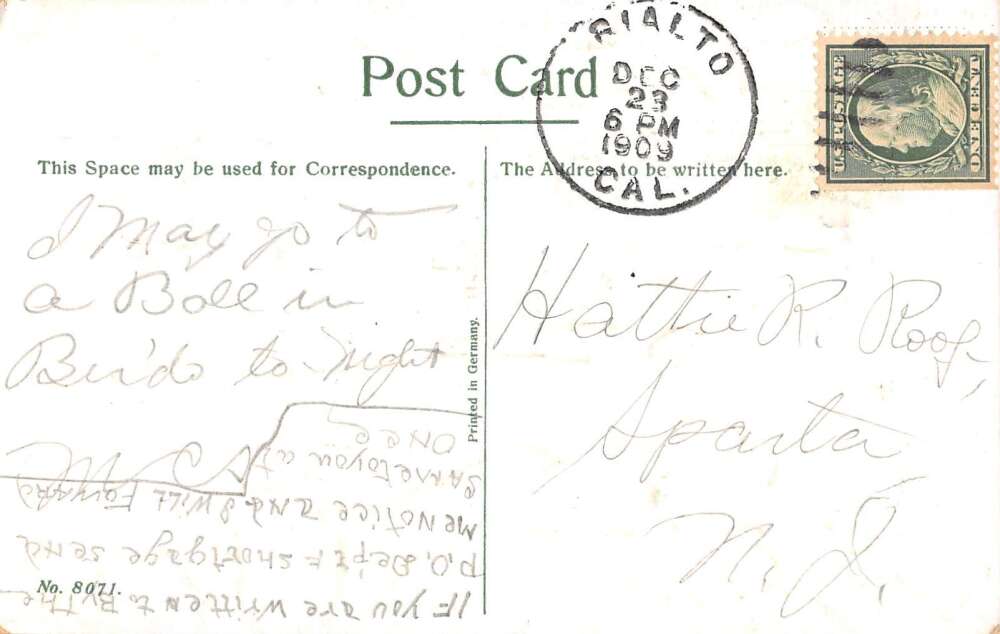 Post Card
RIALTO
DEC
23
6 PM
1909
CAL.
U.S. POSTAGE
ONE CENT
This Space may be used for Correspondence.
The Address to be written here.
I May go to
a Ball in
to-Night
Hattie R. Roof,
Sparta
N. J.
Printed in Germany.
No. 8071.
IF you are written to By The
P.O. Dep't & shortage send
me notice and I will Forward
same to you at
once